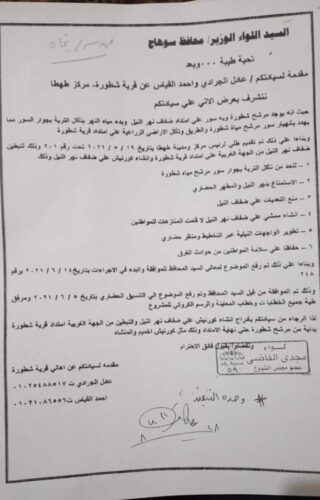 السيد اللواء الوزير/ محافظ سوهاج
تحية طيبة ٠٠٠وبعد
مقدمة لسيادتكم / عادل الجرادي واحمد القياس عن قرية شطورة- مركز طهطا
نتشرف بعرض الاتي علي سيادتكم
حيث انه يوجد مرشح شطورة وبه سور علي امتداد ضفاف نهر النيل وبدء مياه النهر بتأكل التربة بجوار السور مما
يهدد بأنهيار سور مرشح مياة شطورة والطريق وتأكل الاراضي الزراعية علي امتداد قرية شطورة
وبناءا علي ذلك تم تقديم طلي لرئيس مركز ومدينة طهطا بتاريخ ١٩ / ٥ / ٢٠٢١ تحت رقم ٢٠١ وذلك لتبطين
ضفاف نهر النيل من الجهة الغربية علي امتداد قرية شطورة وانشاء كورنيش علي ضفاف نهر النيل وذلك
١ - للحد من تأكل التربة بجوار سور مرشح مياة شطورة
٢ - الاستمتاع بنهر النيل والمظهر الحضاري
٣ - منع التعديات علي ضفاف النيل
٤ - انشاء ممشي علي ضفاف نهر النيل لاقامت المنتزهات للمواطنين
٥ - تطوير الواجهات النيلية عبر التخطيط ومناظر حضاري
٦ - حفاظا علي سلامة المواطنين من حوادث الغرق
وبناءا علي ذلك تم رفع الموضوع لمعالي السيد المحافظ للموافقة والبدء في الاجراءات بتاريخ ١٤/ ٦ / ٢٠٢١ برقم
٢٤٨
وذلك تم الموافقة من قبل السيد المحافظ وتم رفع الموضوع الي التنسيق الحضاري بتاريخ ٥ / ٦ / ٢٠٢١ ومرفق
طية جميع الخطابات وخطاب المعاينة والرسم الكروكي للمشروع
لذا الرجاء من سيادتكم بأفراج انشاء كورنيش علي ضفاف نهر النيل والتبطين من الجهة الغربية امتداد قرية شطورة
بداية من مرشح شطورة حتي نهاية الامتداد وذلك مثل كورنيش اخميم والمنشاه
وتفضلوا بقبول فائق الاحترام
لـــواء
مجدى القاضى
عضو مجلس الشيوخ
مقدمه لسيادتكم عن اهالي قرية شطورة
عادل الجرادي ت ٠١٠٢٥٤٨٨٥١٧
احمد القياس ت ٠١٠٢١٠٨٦٥٥٦